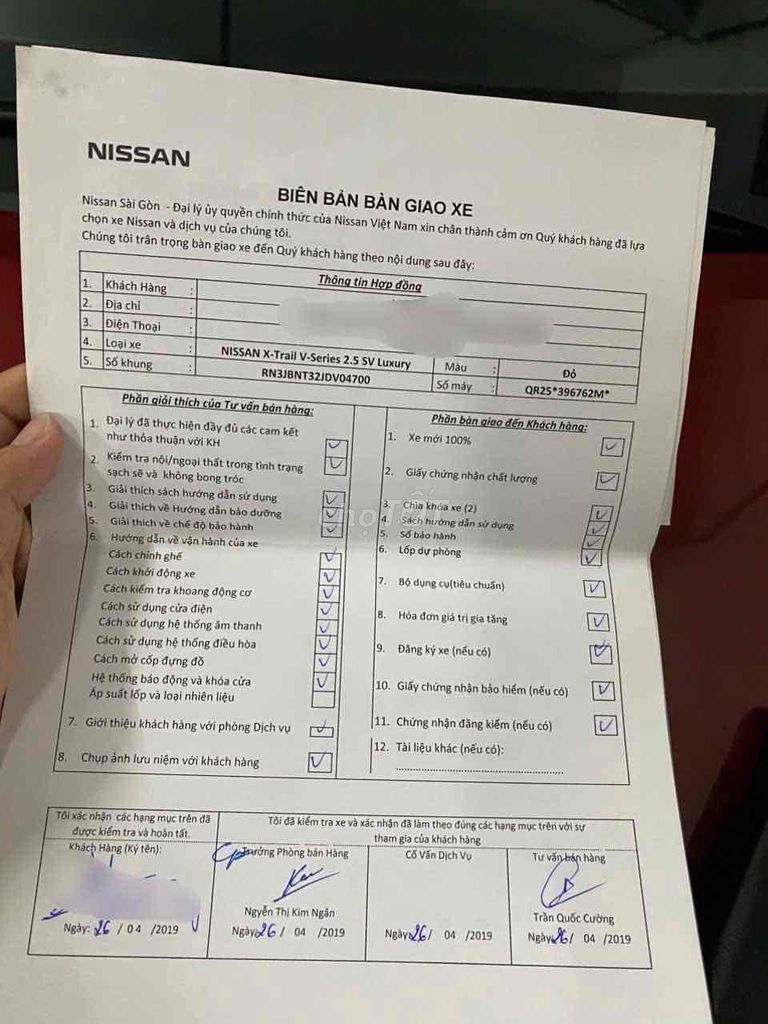 NISSAN
BIÊN BẢN BÀN GIAO XE
Nissan Sài Gòn - Đại lý ủy quyền chính thức của Nissan Việt Nam xin chân thành cảm ơn Quý khách hàng đã lựa
chọn xe Nissan và dịch vụ của chúng tôi.
Chúng tôi trân trọng bàn giao xe đến Quý khách hàng theo nội dung sau đây:
Thông tin Hợp đồng
1. Khách Hàng :
2. Địa chỉ :
3. Điện Thoại :
4. Loại xe : NISSAN X-Trail V-Series 2.5 SV Luxury Màu : Đỏ
5. Số khung : RN3JBNT32JDV04700 Số máy : QR25*396762M*
Phần giải thích của Tư vấn bán hàng:
1. Đại lý đã thực hiện đầy đủ các cam kết
như thỏa thuận với KH
2. Kiểm tra nội/ngoại thất trong tình trạng
sạch sẽ và không bong tróc
3. Giải thích sách hướng dẫn sử dụng
4. Giải thích về Hướng dẫn bảo dưỡng
5. Giải thích về chế độ bảo hành
6. Hướng dẫn về vận hành của xe
Cách chỉnh ghế
Cách khởi động xe
Cách kiểm tra khoang động cơ
Cách sử dụng cửa điện
Cách sử dụng hệ thống âm thanh
Cách sử dụng hệ thống điều hòa
Cách mở cốp đựng đồ
Hệ thống báo động và khóa cửa
Áp suất lốp và loại nhiên liệu
7. Giới thiệu khách hàng với phòng Dịch vụ
8. Chụp ảnh lưu niệm với khách hàng
Phần bàn giao đến Khách hàng:
1. Xe mới 100%
2. Giấy chứng nhận chất lượng
3. Chìa khóa xe (2)
4. Sách hướng dẫn sử dụng
5. Sổ bảo hành
6. Lốp dự phòng
7. Bộ dụng cụ(tiêu chuẩn)
8. Hóa đơn giá trị gia tăng
9. Đăng ký xe (nếu có)
10. Giấy chứng nhận bảo hiểm (nếu có)
11. Chứng nhận đăng kiểm (nếu có)
12. Tài liệu khác (nếu có):
Tôi xác nhận các hạng mục trên đã
được kiểm tra và hoàn tất.
Khách Hàng (Ký tên):
Ngày: 26 / 04 /2019
Tôi đã kiểm tra xe và xác nhận đã làm theo đúng các hạng mục trên với sự
tham gia của khách hàng
Trưởng Phòng bán Hàng
Ngyễn Thị Kim Ngân
Ngày 26/ 04 /2019
Cố Vấn Dịch Vụ
Ngày 26/ 04 /2019
Tư vấn bán hàng
Trần Quốc Cường
Ngày 26/ 04 /2019